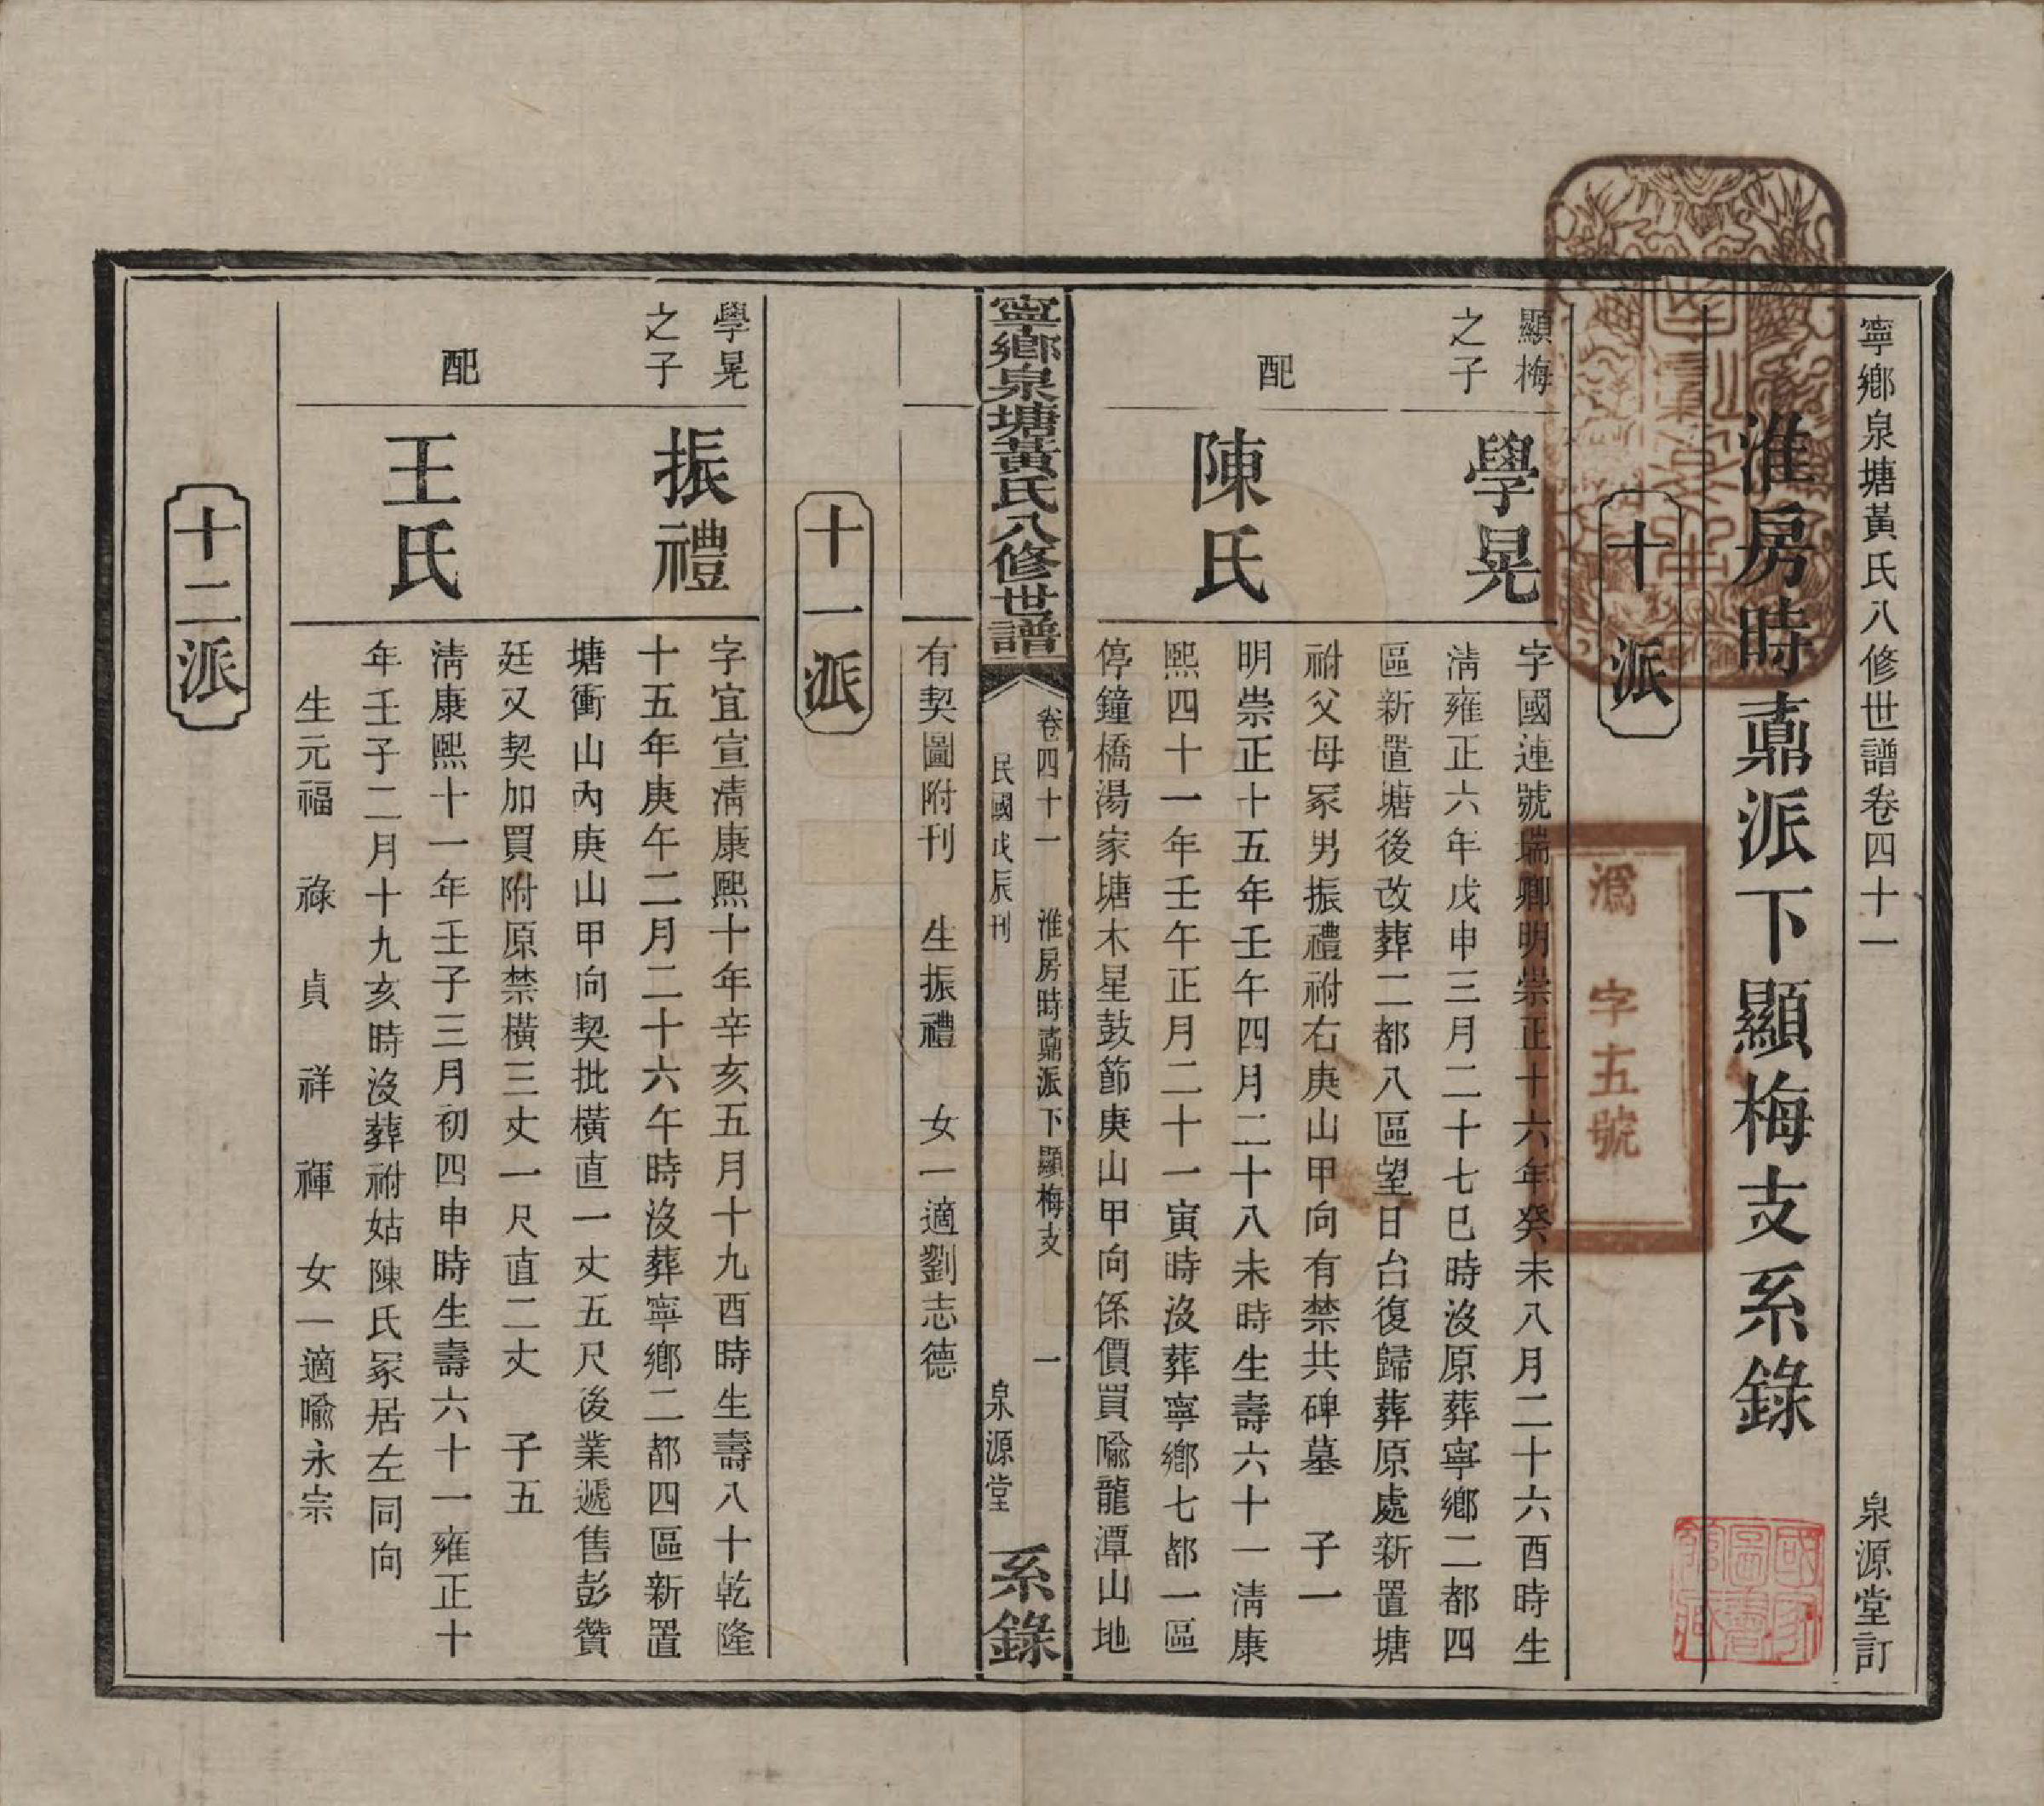 寧鄉泉塘黃氏八修世譜卷四十一
泉源堂訂
淮房時鼒派下顯梅支系錄
十派
顯梅
之子
學晃
字國連號瑞卿明崇正十六年癸未八月二十六酉時生
清雍正六年戊申三月二十七巳時沒原葬寧鄉二都四
區新置塘後改葬二都八區望日台復歸葬原處新置塘
祔父母冢男振禮祔右庚山甲向有禁共碑墓 子一
配
陳氏
明崇正十五年壬午四月二十八未時生壽六十一清康
熙四十一年壬午正月二十一寅時沒葬寧鄉七都一區
停鐘橋湯家塘木星鼓節庚山甲向係價買喻龍潭山地
寧鄉泉塘黃氏八修世譜
卷四十一 淮房時鼒派下顯梅支 一
民國戊辰刊
泉源堂
系錄
有契圖附刊 生振禮 女一適劉志德
十一派
學晃
之子
振禮
字宜宣清康熙十年辛亥五月十九酉時生壽八十乾隆
十五年庚午二月二十六午時沒葬寧鄉二都四區新置
塘衝山內庚山甲向契批橫直一丈五尺後業遞售彭贊
廷又契加買附原禁橫三丈一尺直二丈 子五
配
王氏
清康熙十一年壬子三月初四申時生壽六十一雍正十
年壬子二月十九亥時沒葬祔姑陳氏冢居左同向
生元福 祿 貞 祥 禪 女一適喻永宗
十二派
溈字五號
國家圖書館藏